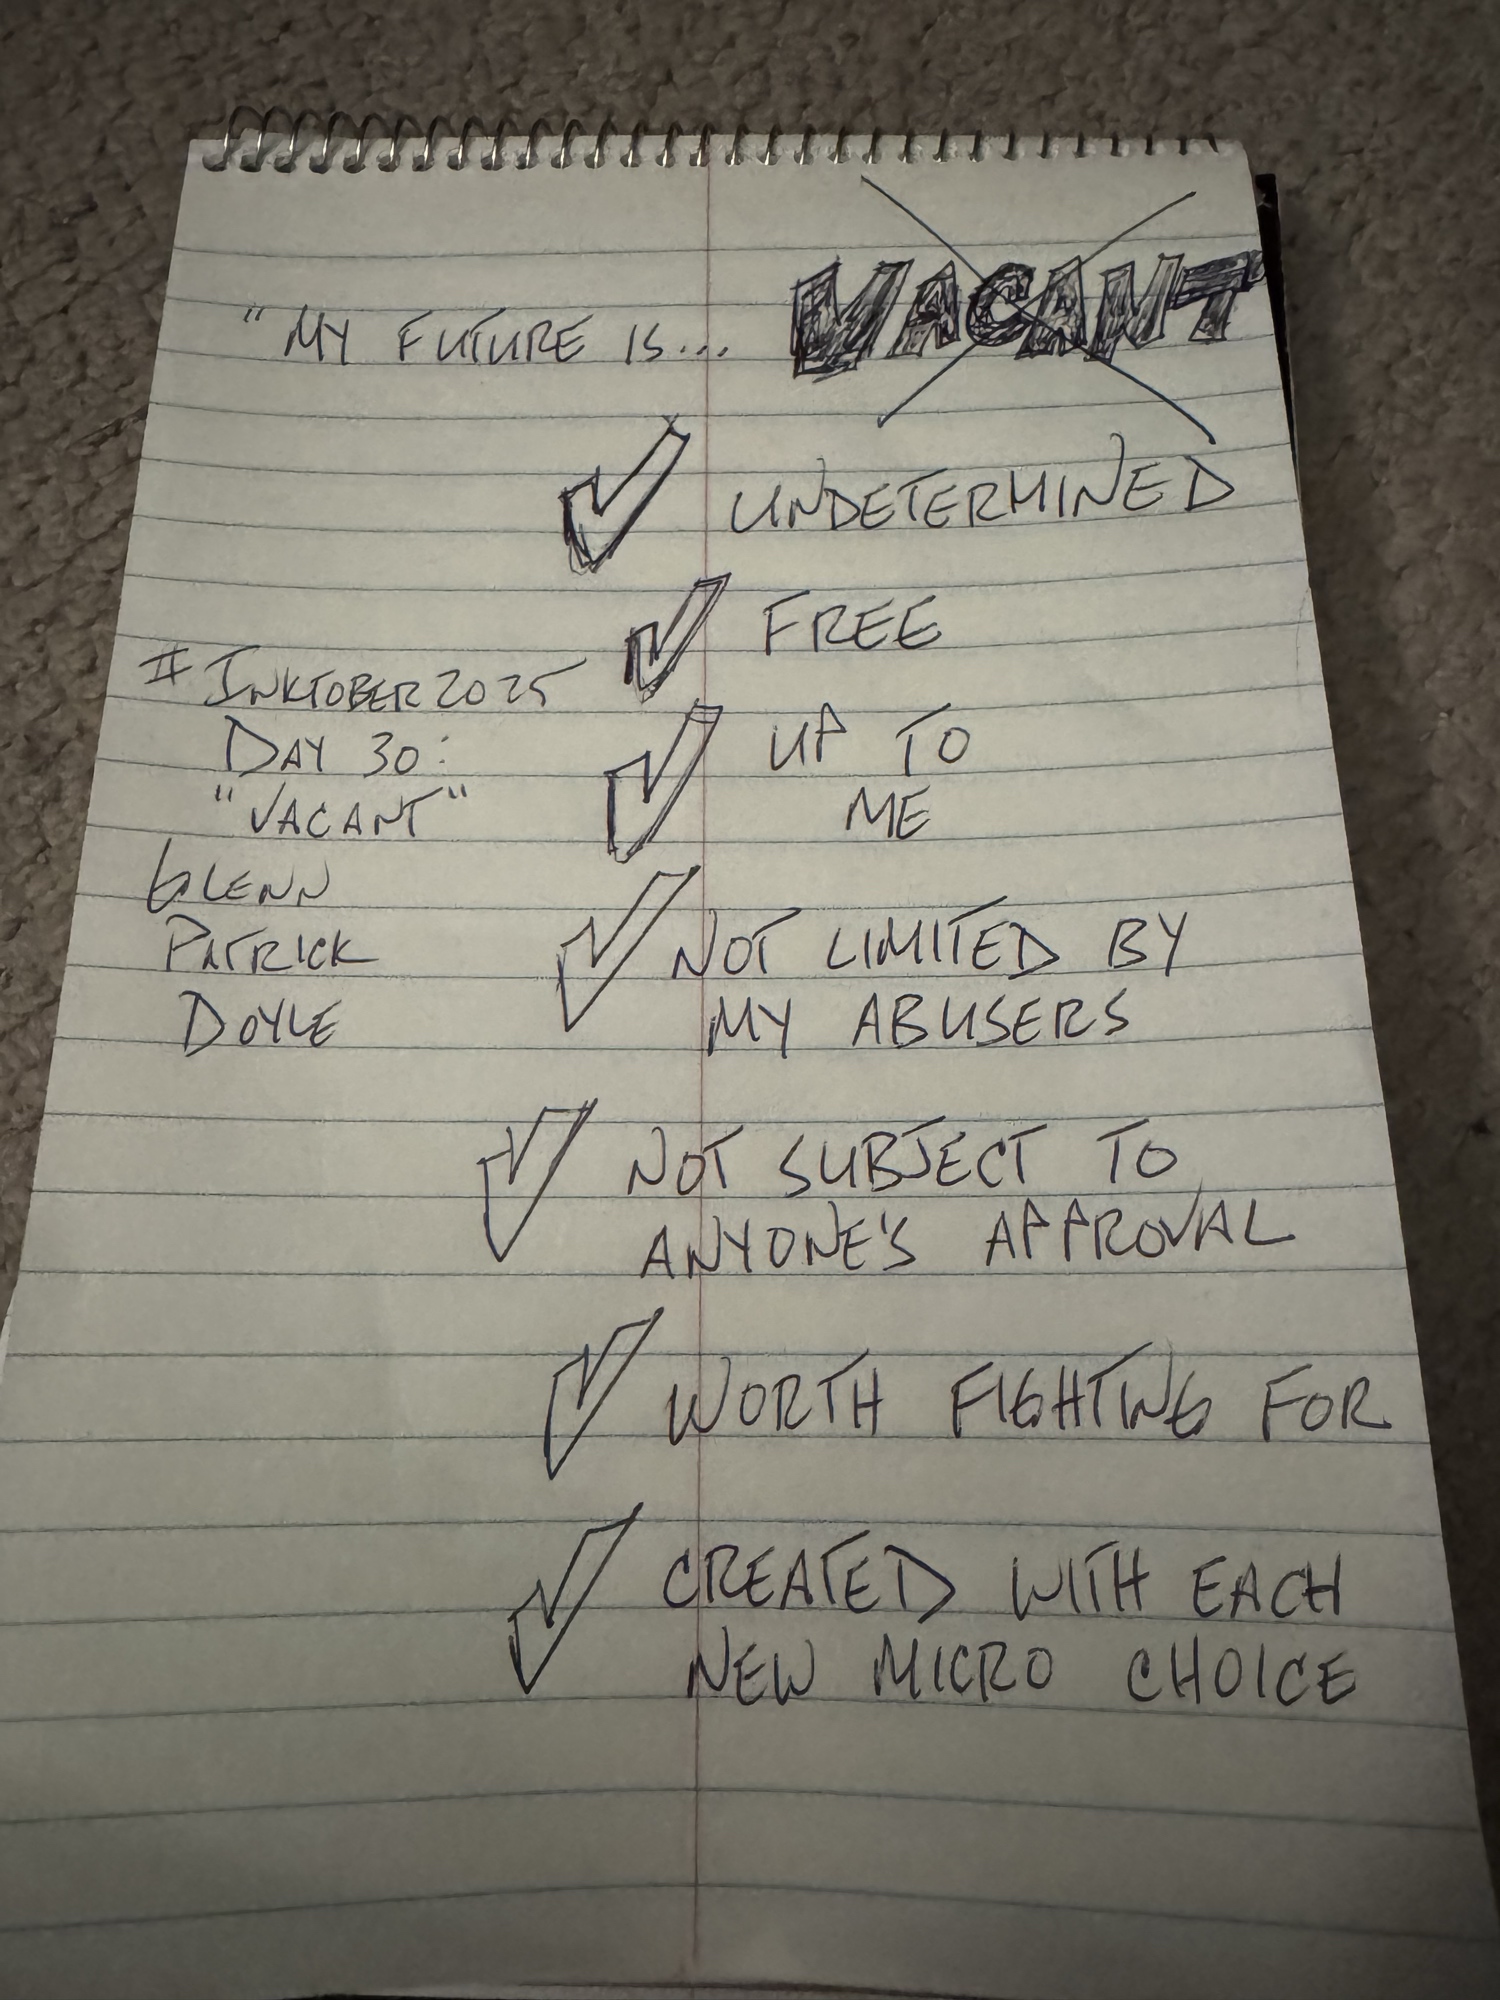 "MY FUTURE IS... VACANT
UNDETERMINED
FREE
UP TO
ME
NOT LIMITED BY
MY ABUSERS
NOT SUBJECT TO
ANYONE'S APPROVAL
WORTH FIGHTING FOR
CREATED WITH EACH
NEW MICRO CHOICE
# INKTOBER 2025
DAY 30:
"VACANT"
GLENN
PATRICK
DOYLE